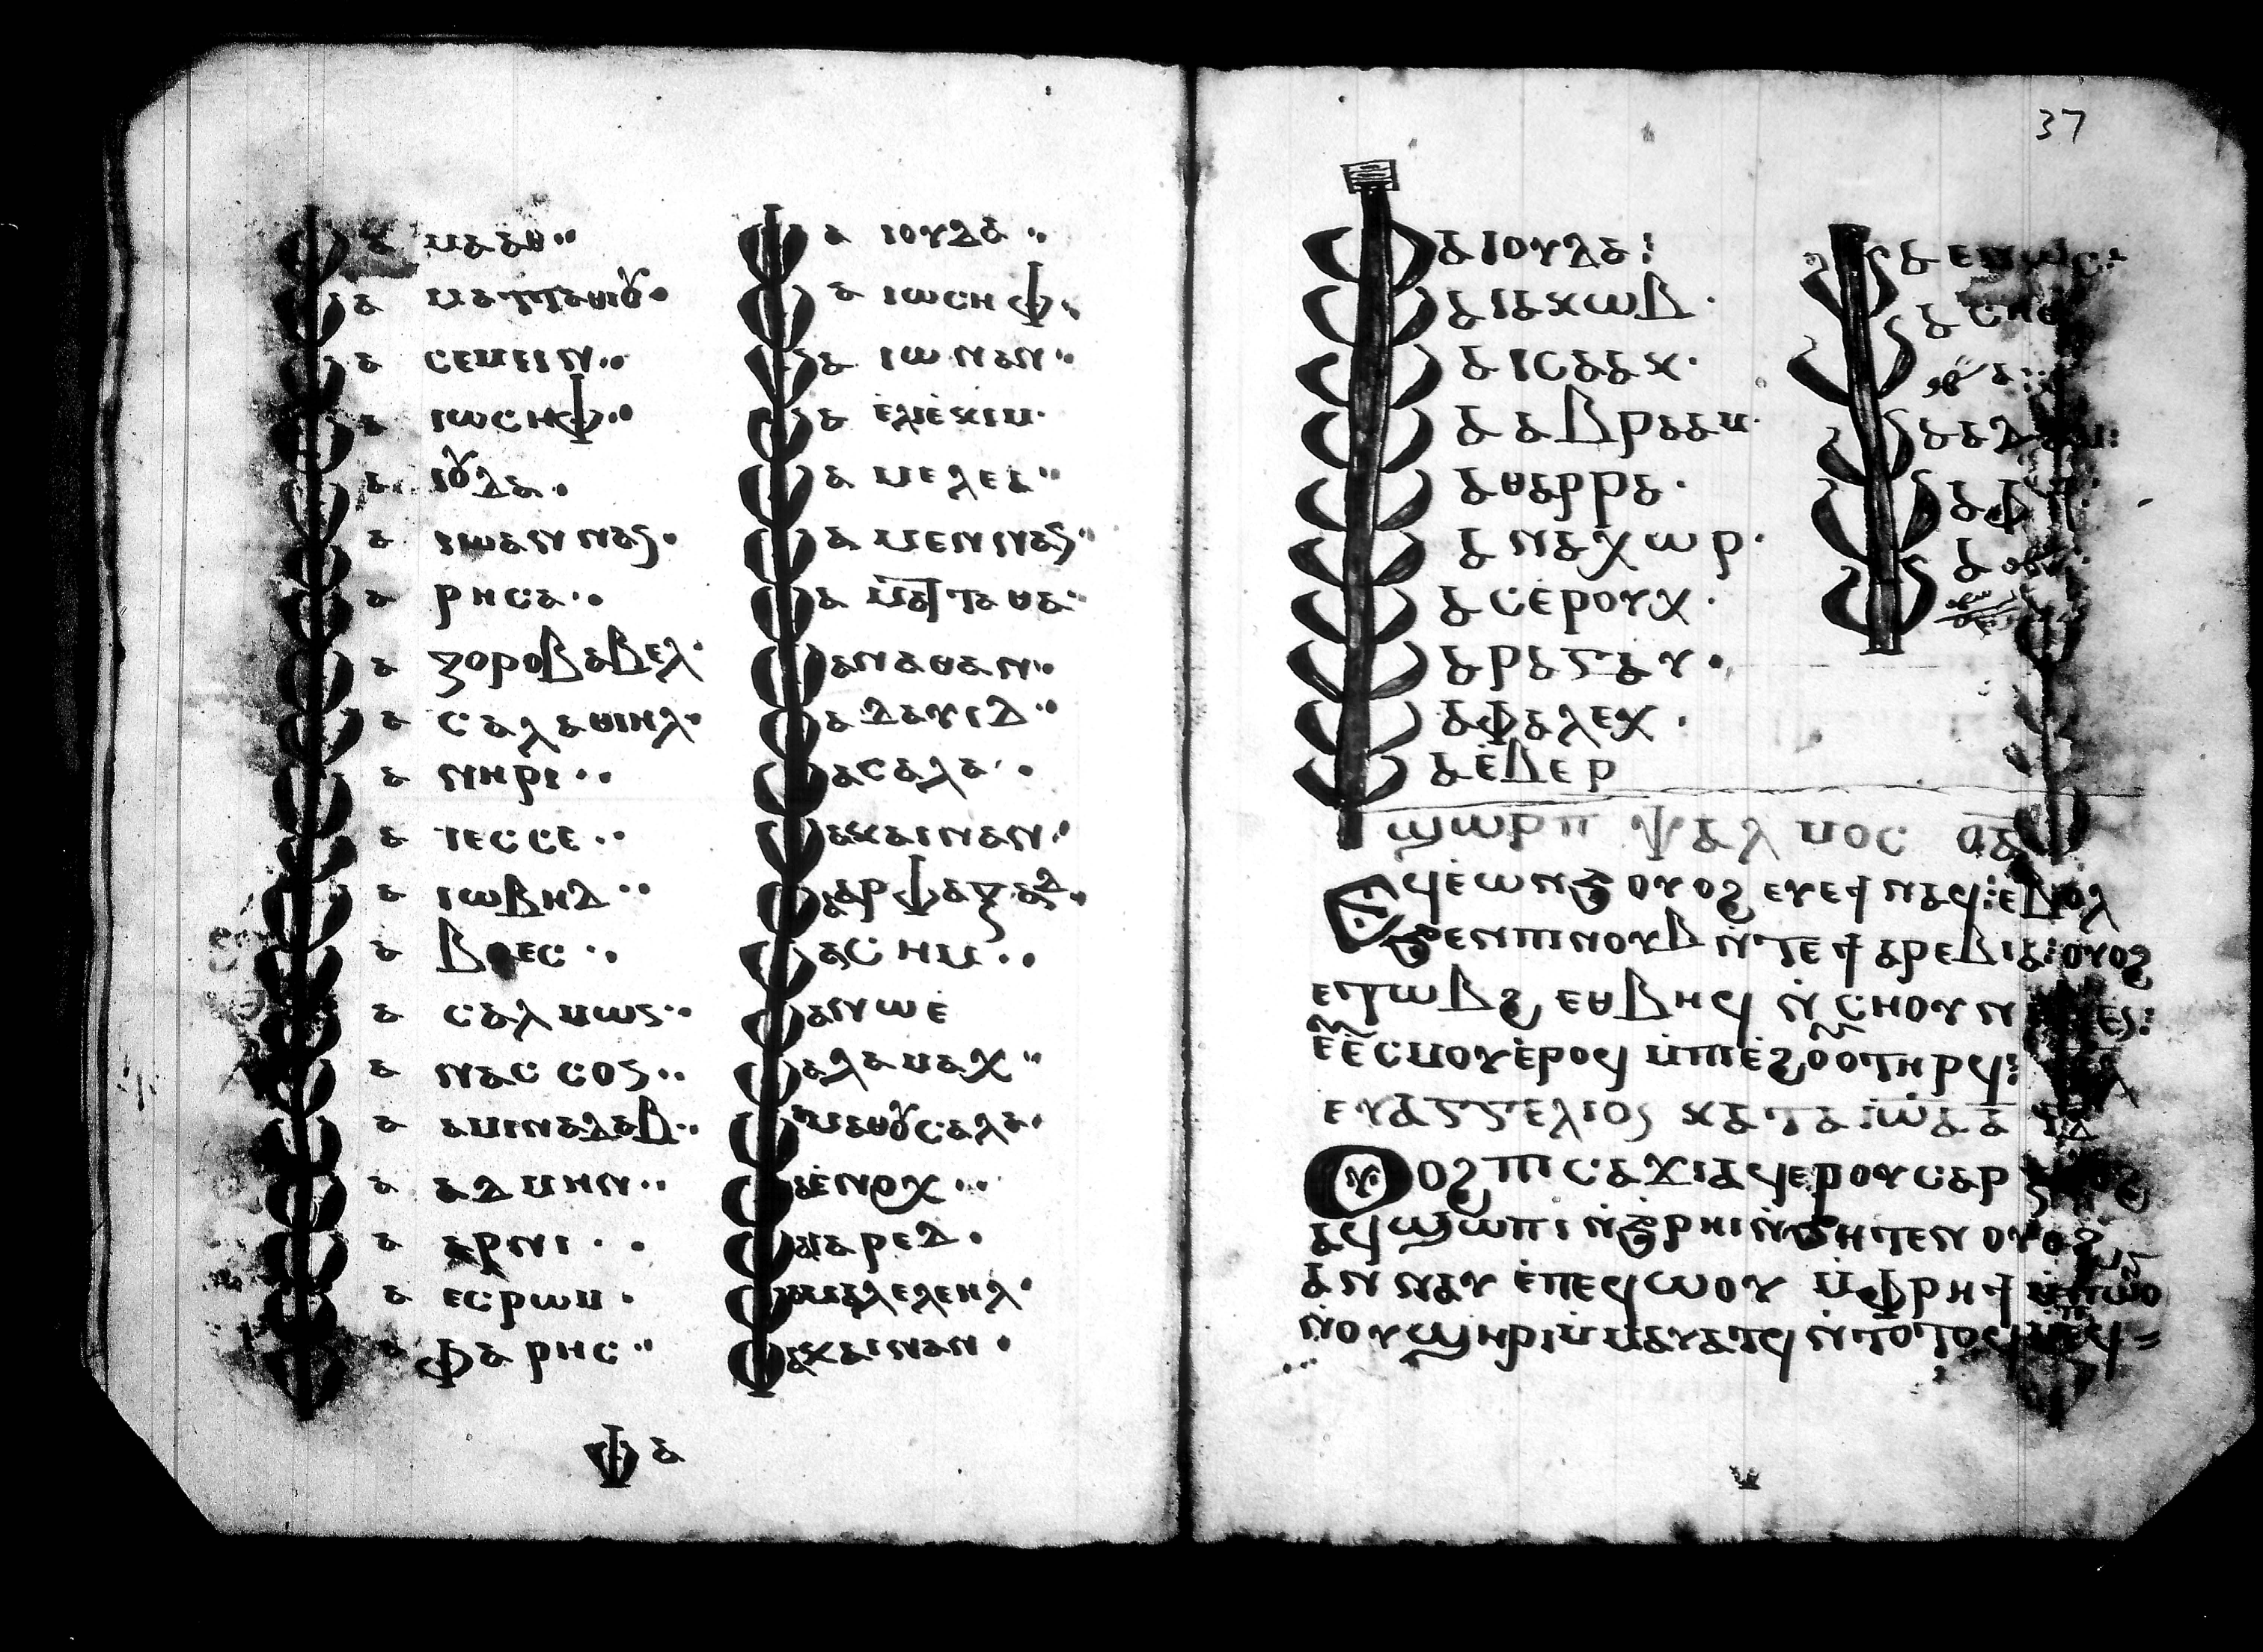 ⲁ ⲙⲁⲁⲑ
ⲁ ⲙⲁⲧⲧⲁⲑⲓⲟⲩ
ⲁ ⲥⲉⲙⲉⲓⲛ
ⲁ ⲓⲱⲥⲏⲫ
ⲁ ⲓⲟⲩⲇⲁ
ⲁ ⲓⲱⲁⲛⲛⲁⲥ
ⲁ ⲣⲏⲥⲁ
ⲁ ⲍⲟⲣⲟⲃⲁⲃⲉⲗ
ⲁ ⲥⲁⲗⲁⲑⲓⲏⲗ
ⲁ ⲛⲏⲣⲓ
ⲁ ⲓⲉⲥⲥⲉ
ⲁ ⲓⲱⲃⲏⲇ
ⲁ ⲃⲟⲉⲥ
ⲁ ⲥⲁⲗⲙⲱⲥ
ⲁ ⲛⲁⲥⲥⲟⲥ
ⲁ ⲁⲙⲓⲛⲁⲇⲁⲃ
ⲁ ⲁⲇⲙⲏⲛ
ⲁ ⲁⲣⲛⲓ
ⲁ ⲉⲥⲣⲱⲙ
ⲁ ⲫⲁⲣⲏⲥ
ⲁ ⲓⲟⲩⲇⲁ
ⲁ ⲓⲱⲥⲏⲫ
ⲁ ⲓⲱⲛⲁⲛ
ⲁ ⲉ̀ⲗⲓⲉ̀ⲕⲓⲙ
ⲁ ⲙⲉⲗⲉⲁ
ⲁ ⲙⲉⲛⲛⲁⲥ
ⲁ ⲙⲁⲧⲧⲁⲑⲁ
ⲁⲛⲁⲑⲁⲛ
ⲁ ⲇⲁⲩⲓⲇ
ⲁⲥⲁⲗⲁ
ⲁⲕⲁⲓⲛⲁⲛ
ⲁⲣⲫⲁⲝⲁⲇ
ⲁⲥⲏⲙ
ⲁⲛⲱⲉ̀
ⲁⲗⲁⲙⲁⲭ
ⲁⲙⲁⲑⲟⲩⲥⲁⲗⲁ
ⲁⲉ̀ⲛⲱⲭ
ⲁⲓⲁⲣⲉⲇ
ⲁⲙⲁⲗⲉⲗⲉⲏⲗ
ⲁⲕⲁⲓⲛⲁⲛ
ⲁ
37
ⲁ ⲓⲟⲩⲇⲁ:
ⲁ ⲓⲁⲕⲱⲃ
ⲁ ⲓⲥⲁⲁⲕ
ⲁ ⲁⲃⲣⲁⲁⲙ
ⲁ ⲑⲁⲣⲣⲁ
ⲁ ⲛⲁⲭⲱⲣ
ⲁ ⲥⲉ̀ⲣⲟⲩⲭ
ⲁ ⲣⲁⲅⲁⲩ
ⲁ ⲫⲁⲗⲉⲕ
ⲁ ⲉ̀ⲃⲉⲣ
ⲁ ⲉⲛⲱⲥ:
ⲁ ⲥⲏⲑ
ⲁ ⲁⲇⲁⲙ:
ⲁ ⲫϯ:
ϣⲱⲣⲡ ⲯⲁⲗⲙⲟⲥ ⲟⲁ
Ⲉϥⲉ̀ⲱⲛϧ ⲟⲩⲟϩ ⲉⲩⲉϯ ⲛⲁϥ: ⲉⲃⲟⲗ
ϧⲉⲛⲡⲓⲛⲟⲩⲃ ⲛ̀ⲧⲉ ϯ ⲁⲣⲉⲃⲓⲁ: ⲟⲩⲟϩ
ⲉⲧⲱⲃϩ ⲉⲑⲃⲏϥ ⲛ̀ⲥⲏⲟⲩ
ⲉⲉⲥⲙⲟⲩ ⲉ̀ⲣⲟϥ ⲙ̀ⲡⲓⲉ̀ϩⲟⲟⲩ ⲧⲏⲣϥ:
ⲉⲩⲁⲅⲅⲉⲗⲓⲟⲥ ⲕⲁⲧⲁ ⲓⲱⲁ ⲁ ⲓⲇ
Ⲟⲩⲟϩ ⲡⲓⲥⲁϫⲓ ⲁϥⲉⲣⲟⲩⲥⲁⲣⲝ ⲟⲩⲟϩ
ⲁϥϣⲱⲡⲓ ⲛ̀ϧⲣⲏⲓ ⲛ̀ϧⲏⲧⲉⲛ ⲟⲩⲟϩ
ⲁⲛⲛⲁⲩ ⲉ̀ⲡⲉϥⲱⲟⲩ ⲙ̀ⲫⲣⲏϯ ⲙ̀ⲡⲱⲟⲩ
ⲛ̀ⲟⲩϣⲏⲣⲓ ⲙ̀ⲙⲁⲩⲁⲧϥ ⲛ̀ⲧⲟⲧⲟϥ